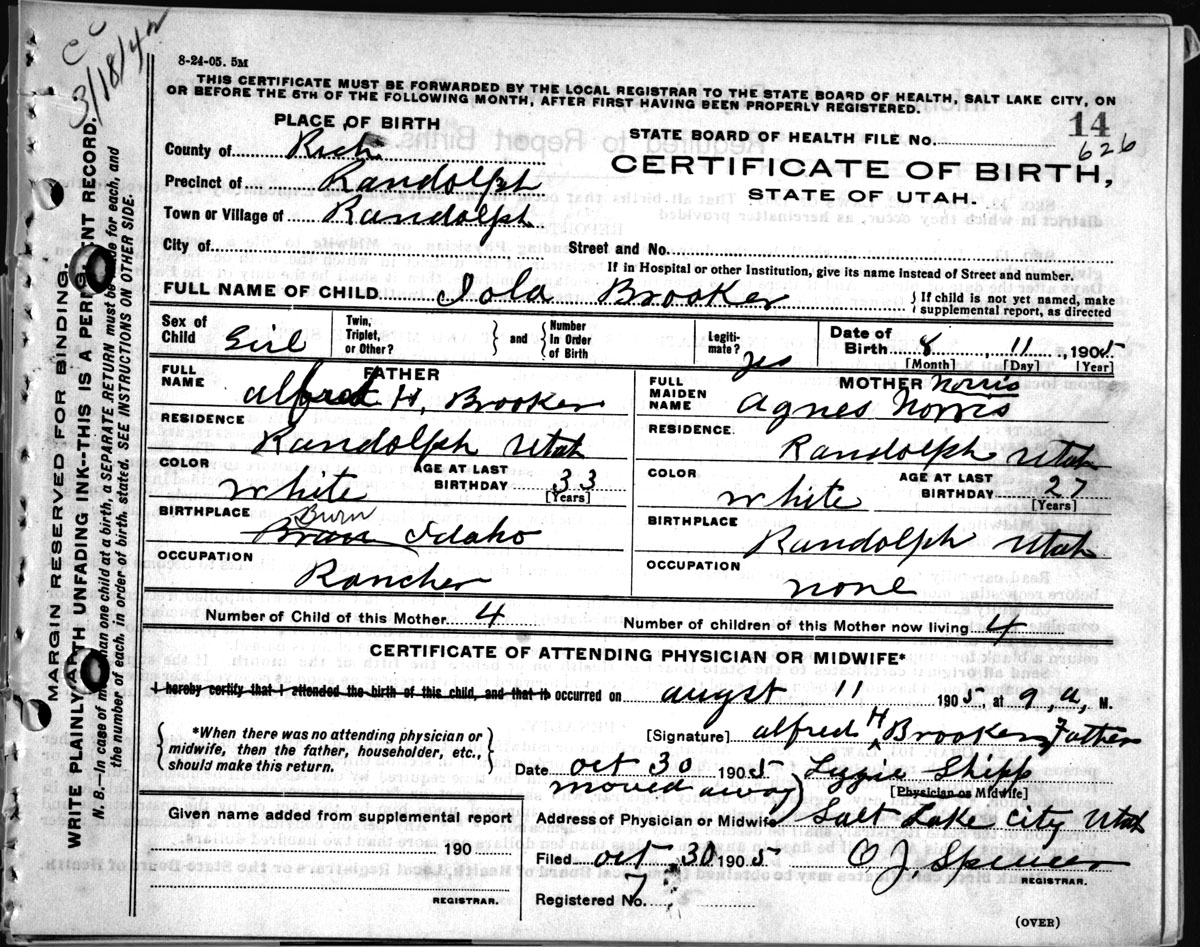 CC
3/18/42
8-24-05. 5M
THIS CERTIFICATE MUST BE FORWARDED BY THE LOCAL REGISTRAR TO THE STATE BOARD OF HEALTH, SALT LAKE CITY, ON
OR BEFORE THE 5TH OF THE FOLLOWING MONTH, AFTER FIRST HAVING BEEN PROPERLY REGISTERED.
PLACE OF BIRTH
STATE BOARD OF HEALTH FILE No. 14
626
County of Rich
CERTIFICATE OF BIRTH,
Precinct of Randolph
STATE OF UTAH.
Town or Village of Randolph
City of Street and No.
If in Hospital or other Institution, give its name instead of Street and number.
FULL NAME OF CHILD Iola Brooker { If child is not yet named, make
supplemental report, as directed
Sex of Child Girl Twin, Triplet, or Other? } and { Number In Order of Birth Legiti-mate? yes Date of Birth 8 11, 1905
[Month] [Day] [Year]
FATHER
FULL NAME alfred H, Brooker
RESIDENCE
Randolph Utah
COLOR white AGE AT LAST BIRTHDAY 33
[Years]
BIRTHPLACE Burn
Idaho
OCCUPATION
Rancher
MOTHER Norris
FULL MAIDEN NAME agnes Norris
RESIDENCE.
Randolph Utah
COLOR white AGE AT LAST BIRTHDAY 27
[Years]
BIRTHPLACE
Randolph Utah
OCCUPATION
none
Number of Child of this Mother 4 Number of children of this Mother now living 4
CERTIFICATE OF ATTENDING PHYSICIAN OR MIDWIFE*
I hereby certify that I attended the birth of this child, and that it occurred on augst 11 1905, at 9, a, M.
*When there was no attending physician or
midwife, then the father, householder, etc.,
should make this return.
[Signature] alfred H Brooker Father
Date oct 30 1905 Lizzie Shipp
moved away) [Physician or Midwife]
Address of Physician or Midwife Salt Lake City Utah
Given name added from supplemental report
190
REGISTRAR.
Filed oct 30 1905 O J. Spencer
REGISTRAR.
Registered No. 7
(OVER)
MARGIN RESERVED FOR BINDING.
WRITE PLAINLY WITH UNFADING INK--THIS IS A PERMANENT RECORD.
N. B.--In case of more than one child at a birth, a SEPARATE RETURN must be made for each, and
the number of each, in order of birth, stated. SEE INSTRUCTIONS ON OTHER SIDE.